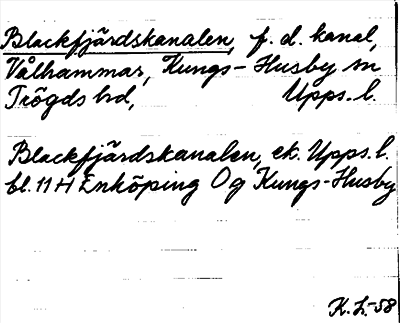 Blackfjärdskanalen, f. d. kanal,
Vålhammar, Kungs-Husby sn
Trögds hd, Upps. l.
Blackfjärdskanalen, ek. Upps. l.
bl. 11 H Enköping Og Kungs-Husby
K. L. -58